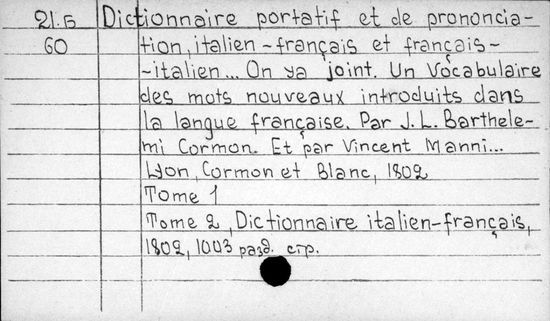 21.Б Dictionnaire portatif et de prononcia-
60 tion, italien-français et français-
-italien... On ya joint. Un Vocabulaire
des mots nouveaux introduits dans
la langue française. Par J.L. Barthele-
mi Cormon. Et par Vincent Manni...
Lyon, Cormon et Blanc, 1802
Tome 1
Tome 2, Dictionnaire italien-français,
1802, 1003 разд. стр.